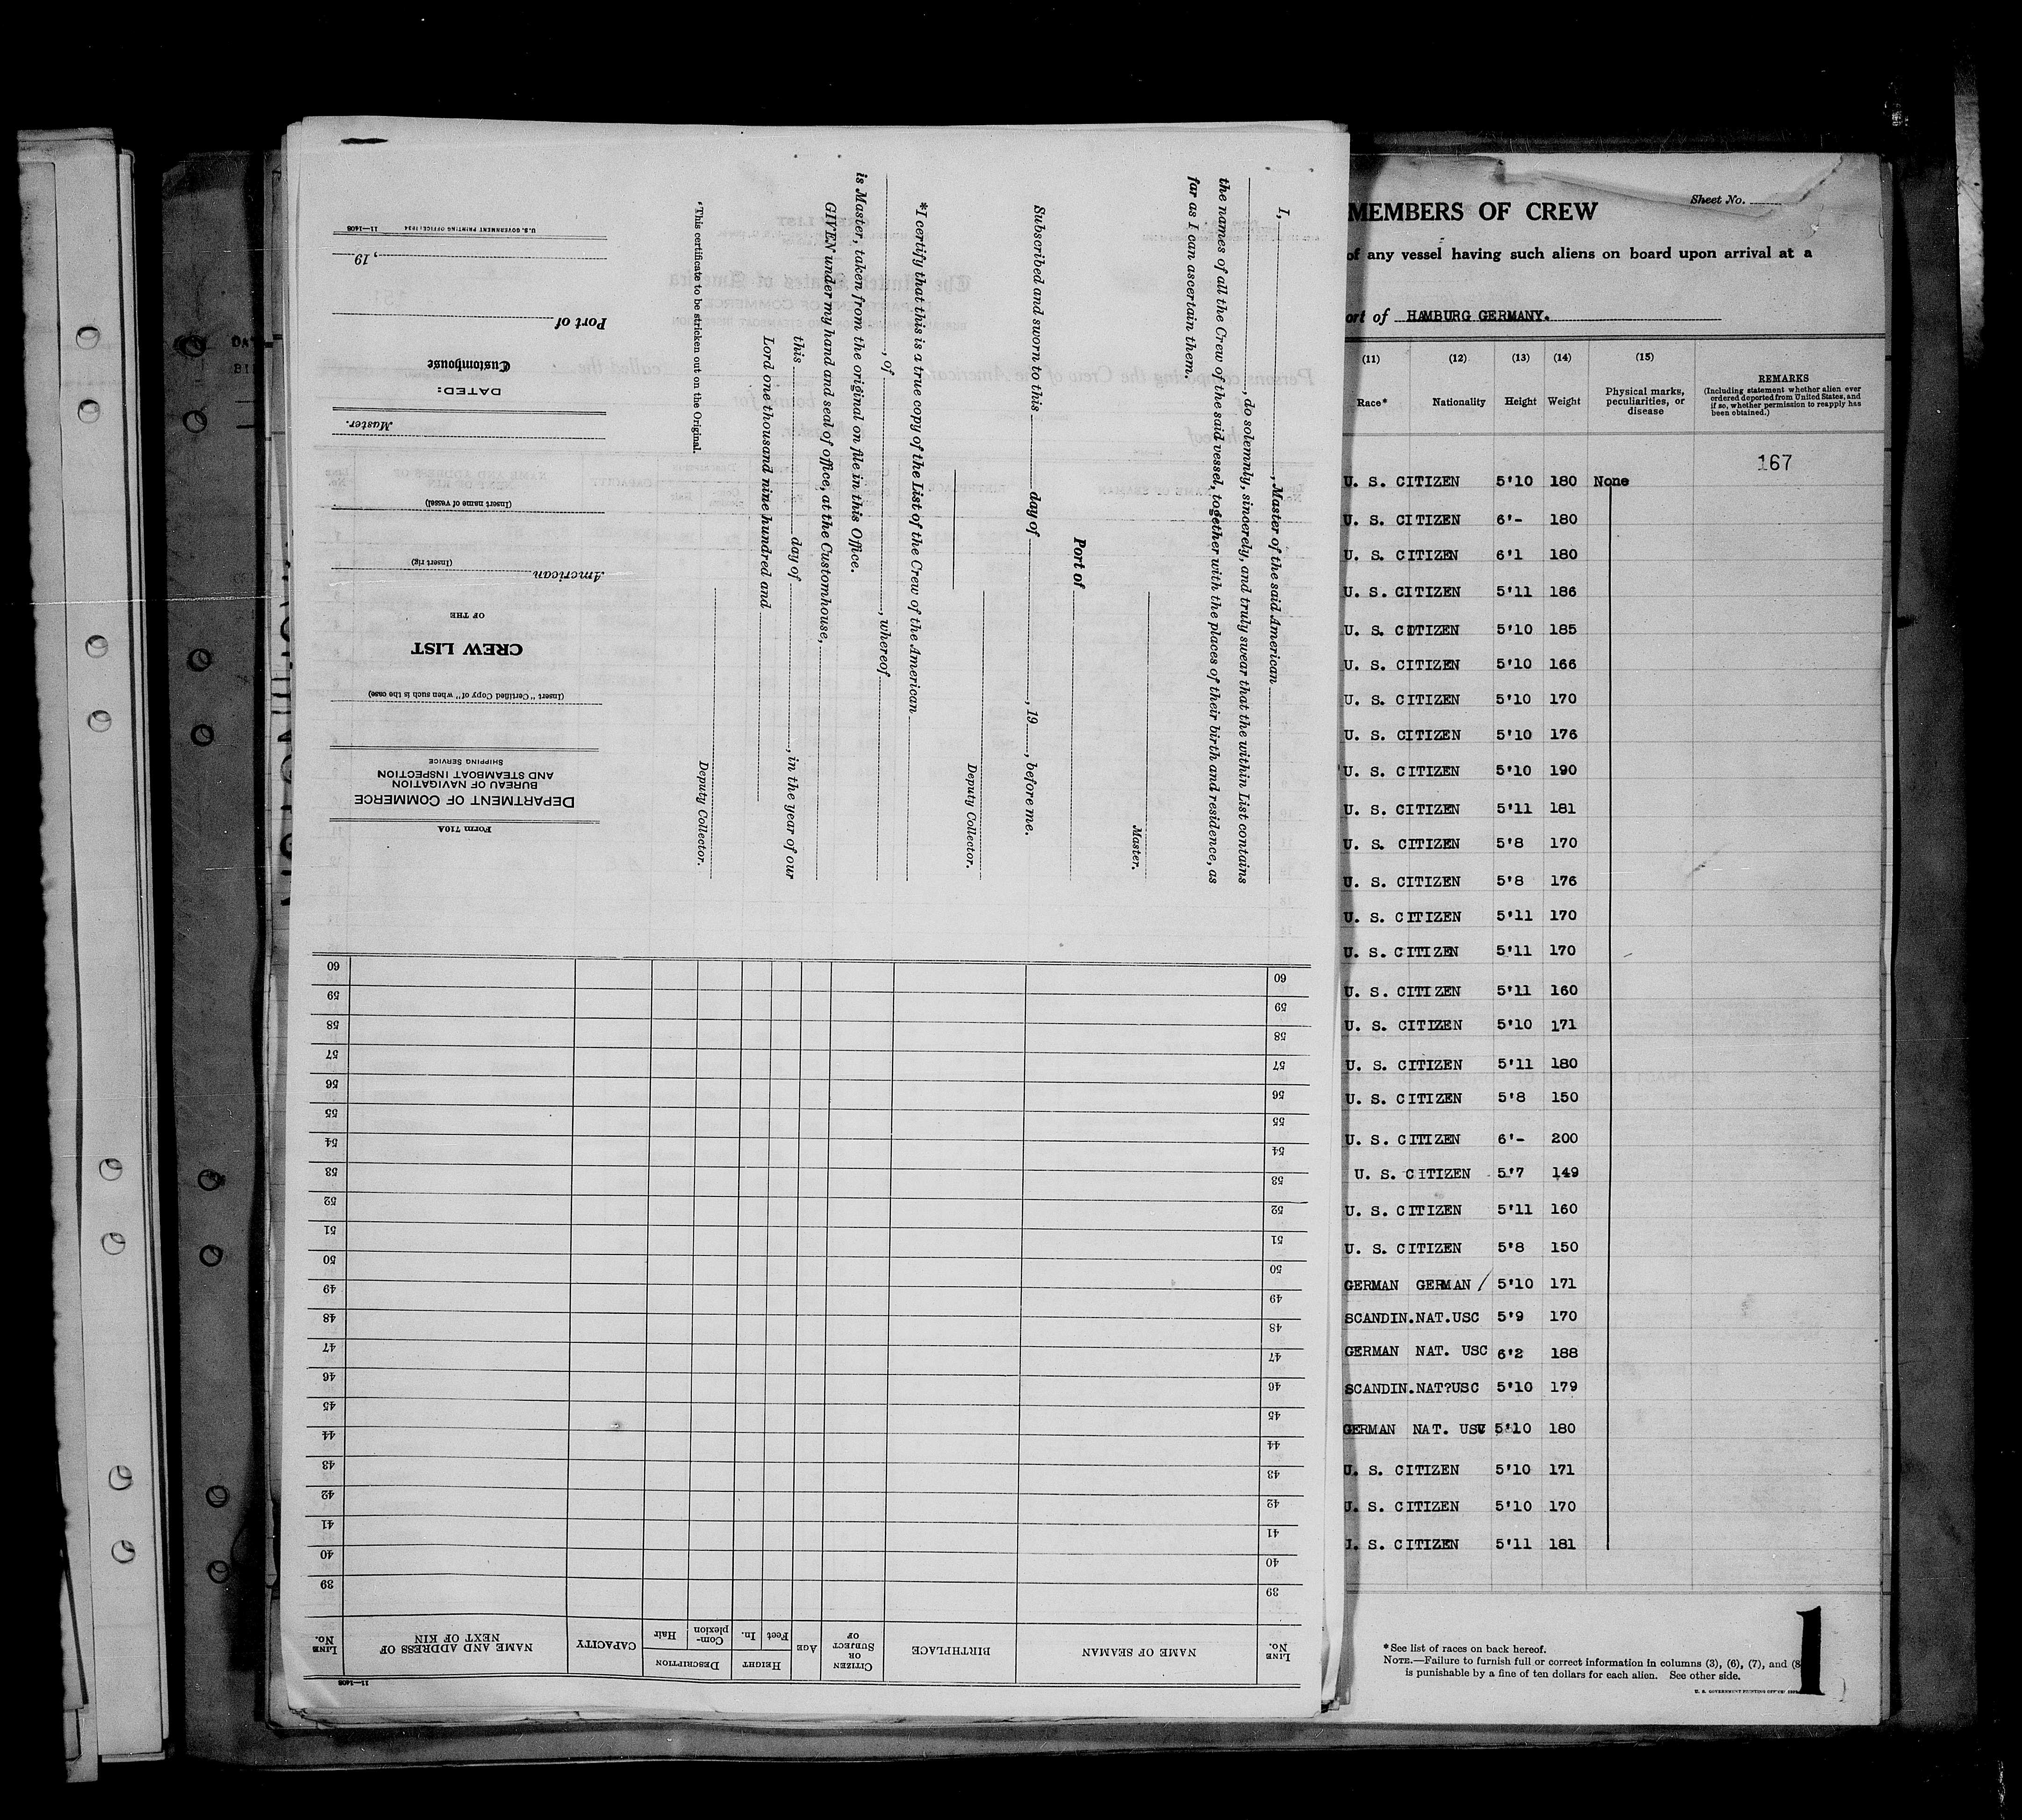 I, , Master of the said American
, do solemnly, sincerely, and truly swear that the within List contains
the names of all the Crew of the said vessel, together with the places of their birth and residence, as
far as I can ascertain them.
Master.
Port of
Subscribed and sworn to this day of , 19 , before me.
Deputy Collector.
*I certify that this is a true copy of the List of the Crew of the American
, of , whereof
is Master, taken from the original on file in this Office.
GIVEN under my hand and seal of office, at the Customhouse,
this day of , in the year of our
Lord one thousand nine hundred and
Deputy Collector.
*This certificate to be stricken out on the Original.
Form 710A
DEPARTMENT OF COMMERCE
BUREAU OF NAVIGATION
AND STEAMBOAT INSPECTION
SHIPPING SERVICE
(Insert "Certified Copy of" when such is the case)
CREW LIST
OF THE
American
(Insert rig)
(Insert name of vessel)
Master.
DATED:
Customhouse
Port of
, 19
U. S. GOVERNMENT PRINTING OFFICE: 1934 11—1408
11—1408
LINE No. NAME OF SEAMAN BIRTHPLACE CITIZEN OR SUBJECT OF AGE HEIGHT Feet In. DESCRIPTION Complexion Hair CAPACITY NAME AND ADDRESS OF NEXT OF KIN LINE No.
39 39
40 40
41 41
42 42
43 43
44 44
45 45
46 46
47 47
48 48
49 49
50 50
51 51
52 52
53 53
54 54
55 55
56 56
57 57
58 58
59 59
60 60
Sheet No.
MEMBERS OF CREW
of any vessel having such aliens on board upon arrival at a
ort of HAMBURG GERMANY.
(11) (12) (13) (14) (15)
Race* Nationality Height Weight Physical marks, peculiarities, or disease REMARKS
(Including statement whether alien ever
ordered deported from United States, and
if so, whether permission to reapply has
been obtained.)
167
U. S. CITIZEN 5'10 180 None
U. S. CITIZEN 6'- 180
U. S. CITIZEN 6'1 180
U. S. CITIZEN 5'11 186
U. S. CITIZEN 5'10 185
U. S. CITIZEN 5'10 166
U. S. CITIZEN 5'10 170
U. S. CITIZEN 5'10 176
U. S. CITIZEN 5'10 190
U. S. CITIZEN 5'11 181
U. S. CITIZEN 5'8 170
U. S. CITIZEN 5'8 176
U. S. CITIZEN 5'11 170
U. S. CITIZEN 5'11 170
U. S. CITIZEN 5'11 160
U. S. CITIZEN 5'10 171
U. S. CITIZEN 5'11 180
U. S. CITIZEN 5'8 150
U. S. CITIZEN 6'- 200
U. S. CITIZEN 5'7 149
U. S. CITIZEN 5'11 160
U. S. CITIZEN 5'8 150
GERMAN GERMAN / 5'10 171
SCANDIN. NAT.USC 5'9 170
GERMAN NAT. USC 6'2 188
SCANDIN. NAT?USC 5'10 179
GERMAN NAT. USC 5'10 180
U. S. CITIZEN 5'10 171
U. S. CITIZEN 5'10 170
U. S. CITIZEN 5'11 181
*See list of races on back hereof.
NOTE.—Failure to furnish full or correct information in columns (3), (6), (7), and (8
is punishable by a fine of ten dollars for each alien. See other side.
U. S. GOVERNMENT PRINTING OFFICE
1